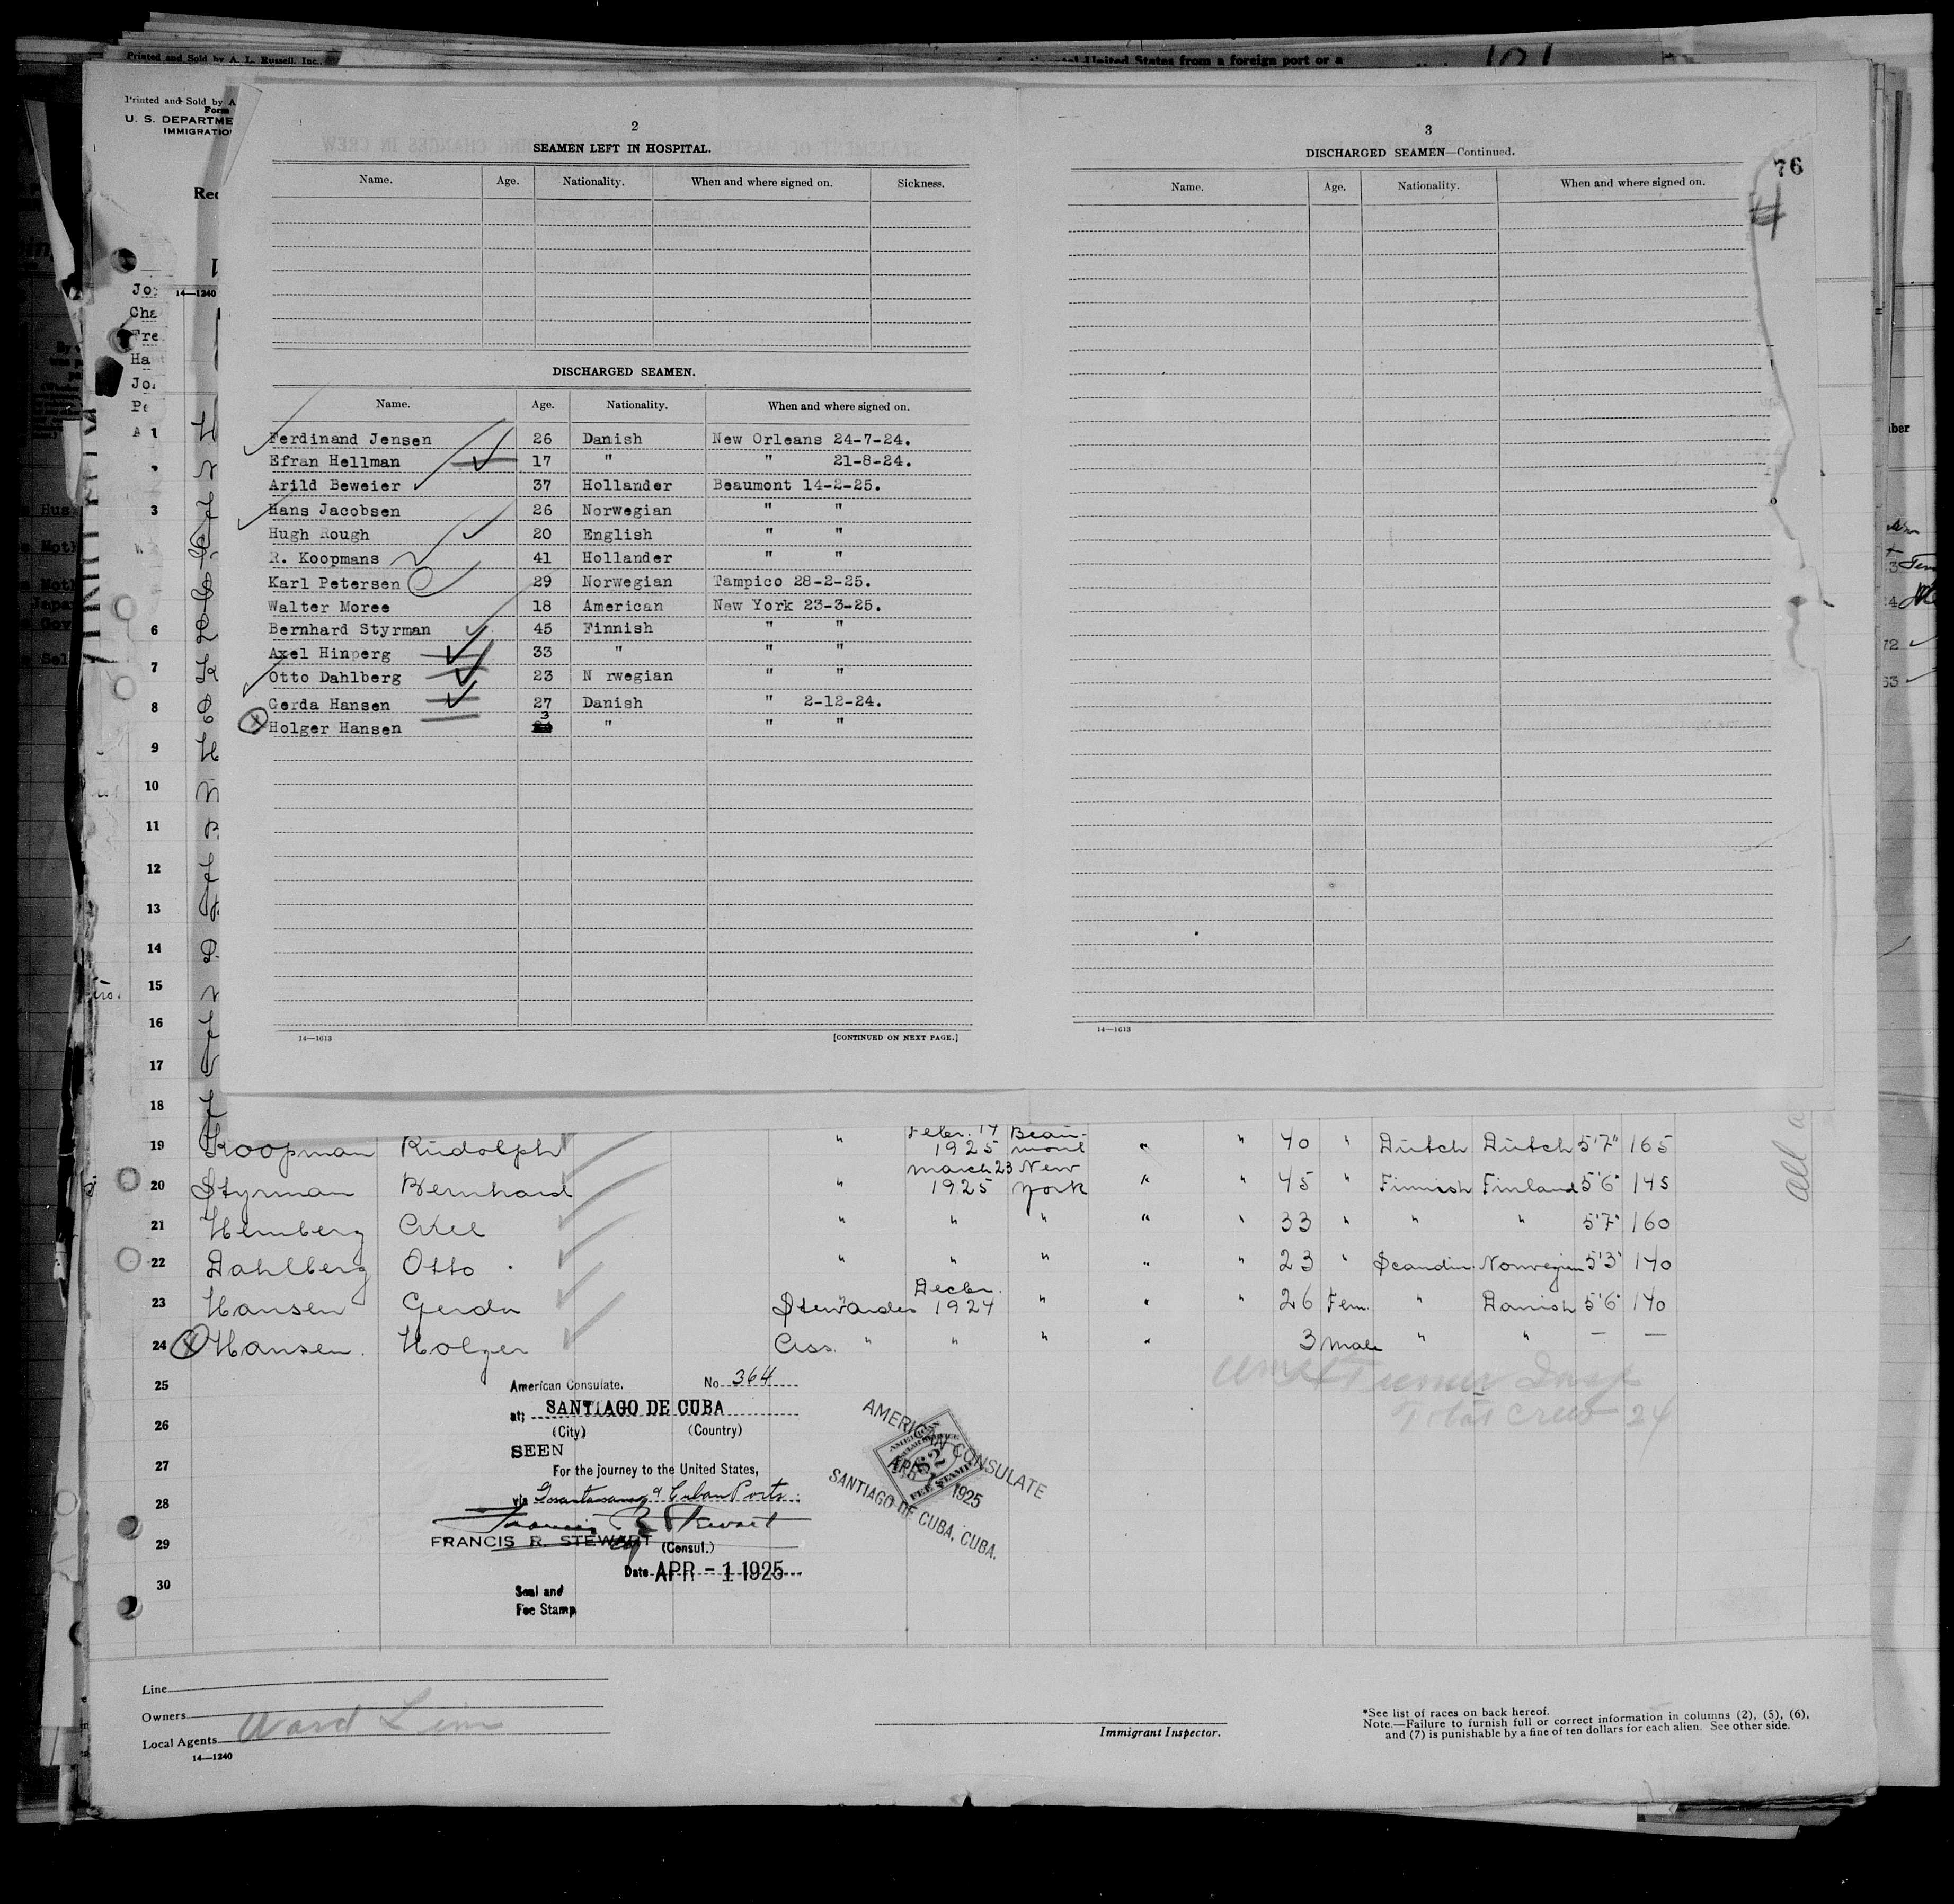 Printed and Sold by A. L. Russell, Inc.,
Continental United States from a foreign port or a
Printed and Sold by A
Form
U. S. DEPARTME
IMMIGRATIO
Rec
14—1240
2
SEAMEN LEFT IN HOSPITAL.
Name. Age. Nationality. When and where signed on. Sickness.
DISCHARGED SEAMEN.
Name. Age. Nationality. When and where signed on.
Ferdinand Jensen 26 Danish New Orleans 24-7-24.
Efran Hellman 17 " " 21-8-24.
Arild Beweier 37 Hollander Beaumont 14-2-25.
Hans Jacobsen 26 Norwegian " "
Hugh Rough 20 English " "
R. Koopmans 41 Hollander " "
Karl Petersen 29 Norwegian Tampico 28-2-25.
Walter Moree 18 American New York 23-3-25.
Bernhard Styrman 45 Finnish " "
Axel Hinperg 33 " " "
Otto Dahlberg 23 N rwegian " "
Gerda Hansen 27 Danish " 2-12-24.
Holger Hansen 3 " " "
14—1613 [CONTINUED ON NEXT PAGE.]
3
DISCHARGED SEAMEN—Continued.
76
Name. Age. Nationality. When and where signed on.
14—1613
Jo
Cha
Fre
Ha
Jo
Pe
A 1
3
6
7
8
9
10
11
12
13
14
15
16
17
18
19 Koopman Rudolph " Febr. 14 1925 Beaumont " " 40 " Dutch Dutch 5'7" 165
20 Styrman Bernhard " March 23 1925 New York " " 45 " Finnish Finland 5'6" 145
21 Hemberg Axel " " " " " 33 " " " 5'7" 160
22 Dahlberg Otto " " " " " 23 " Scandin. Norwegian 5'3" 140
23 Hansen Gerda Stewardes Decbr. 1924 " " " 26 Fem. " Danish 5'6" 140
24 Hansen. Holger Ass. " " " " 3 male " " — —
25
26
27
28
29
30
Total Crew 24
American Consulate, No 364
at; SANTIAGO DE CUBA
(City) (Country)
SEEN
For the journey to the United States,
via Guantanamo & Cuban Ports
Francis R Stewart
FRANCIS R. STEWART (Consul.)
Date APR - 1 1925
Seal and
Fee Stamp
AMERICAN CONSULATE
AMERICAN
$2
FEE STAMP
APR 1 1925
SANTIAGO DE CUBA, CUBA.
Line
Owners
Local Agents Ward Line
14—1240
Immigrant Inspector.
*See list of races on back hereof.
Note.—Failure to furnish full or correct information in columns (2), (5), (6),
and (7) is punishable by a fine of ten dollars for each alien. See other side.